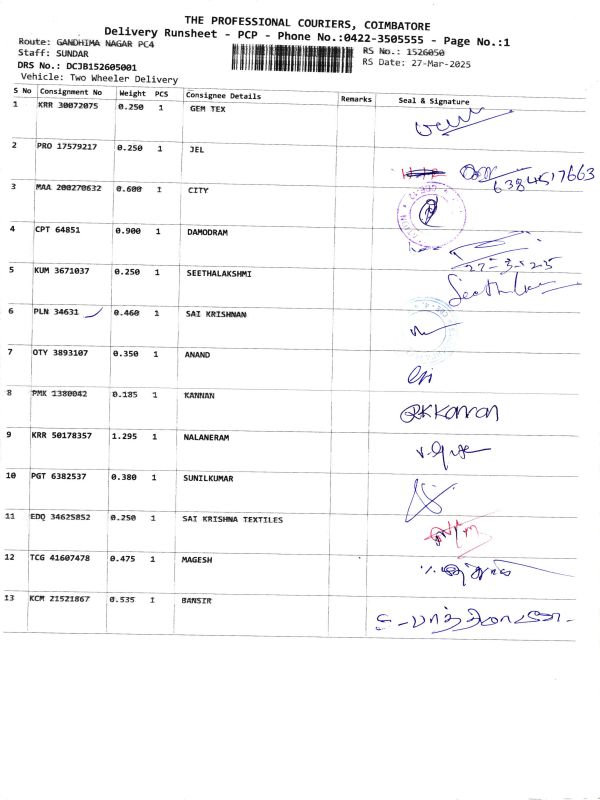 THE PROFESSIONAL COURIERS, COIMBATORE
Delivery Runsheet - PCP - Phone No.:0422-3505555 - Page No.:1
Route: GANDHIMA NAGAR PC4
RS No.: 1526050
Staff: SUNDAR
RS Date: 27-Mar-2025
DRS No.: DCJB152605001
Vehicle: Two Wheeler Delivery
S No Consignment No Weight PCS Consignee Details Remarks Seal & Signature
1 KRR 30072075 0.250 1 GEM TEX
2 PRO 17579217 0.250 1 JEL
6384517663
3 MAA 200270632 0.600 1 CITY
4 CPT 64851 0.900 1 DAMODRAM
27-3-25
5 KUM 3671037 0.250 1 SEETHALAKSHMI
6 PLN 34631 0.460 1 SAI KRISHNAN
7 OTY 3893107 0.350 1 ANAND
8 PMK 1380042 0.185 1 KANNAN
RKKannan
9 KRR 50178357 1.295 1 NALANERAM
10 PGT 6382537 0.380 1 SUNILKUMAR
11 EDQ 34625852 0.250 1 SAI KRISHNA TEXTILES
12 TCG 41607478 0.475 1 MAGESH
13 KCM 21521867 0.535 1 BANSIR